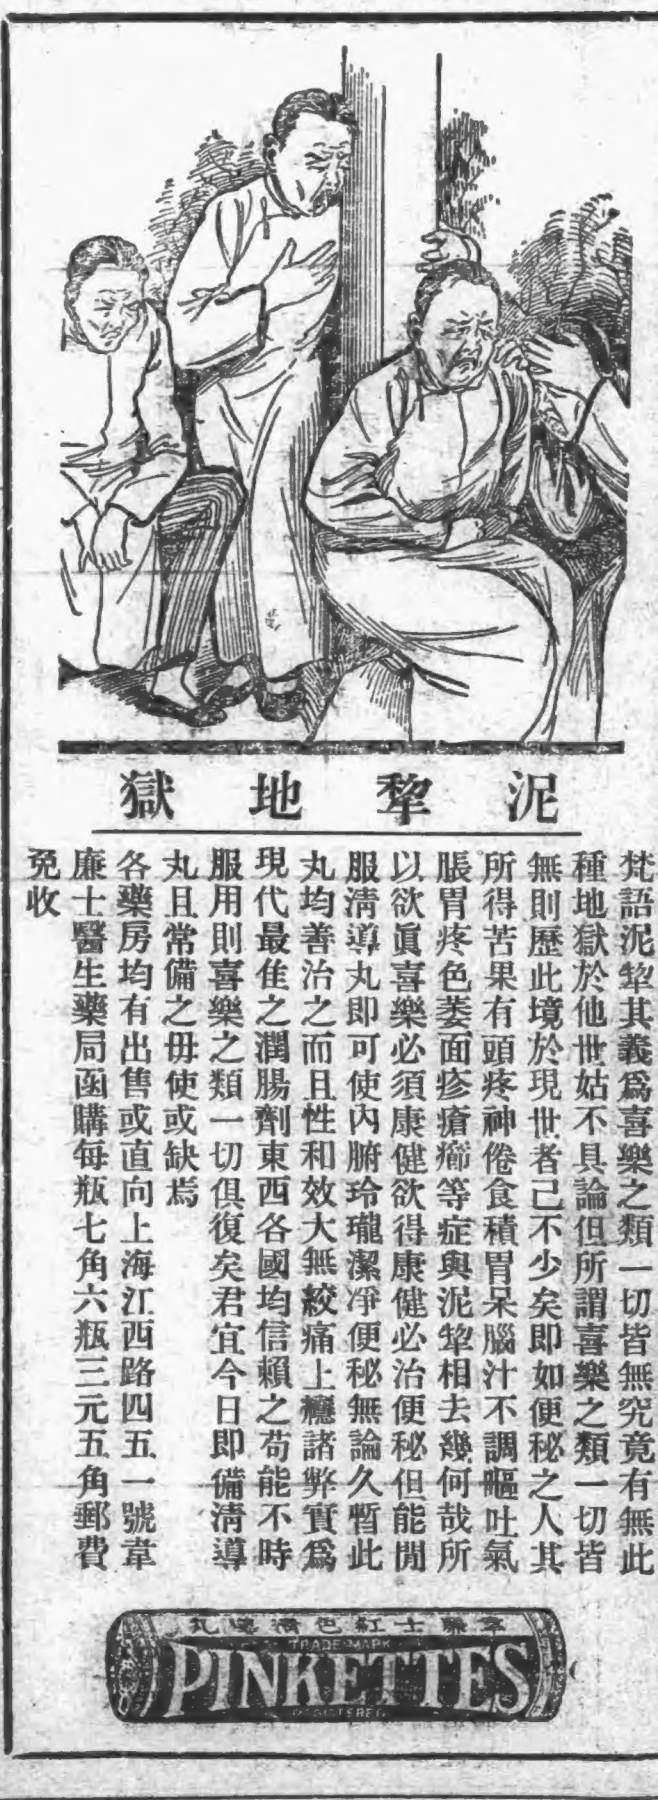 泥犂地獄
梵語泥犂其義爲喜樂之類一切皆無究竟有無此
種地獄於他世姑不具論但所謂喜樂之類一切皆
無則歷此境於現世者已不少矣即如便秘之人其
所得苦果有頭疼神倦食積胃呆腦汁不調嘔吐氣
脹胃疼色萎面疹瘡癤等症與泥犂相去幾何哉所
以欲眞喜樂必須康健欲得康健必治便秘但能間
服淸導丸即可使內腑玲瓏潔凈便秘無論久暫此
丸均善治之而且性和效大無絞痛上癮諸弊實爲
現代最佳之潤腸劑東西各國均信賴之苟能不時
服用則喜樂之類一切俱復矣君宜今日即備淸導
丸且常備之毋使或缺焉
各藥房均有出售或直向上海江西路四五一號韋
廉士醫生藥局函購每瓶七角六瓶三元五角郵費
免收
士紅色淸導丸
TRADE MARK
PINKETTES
REGISTERED